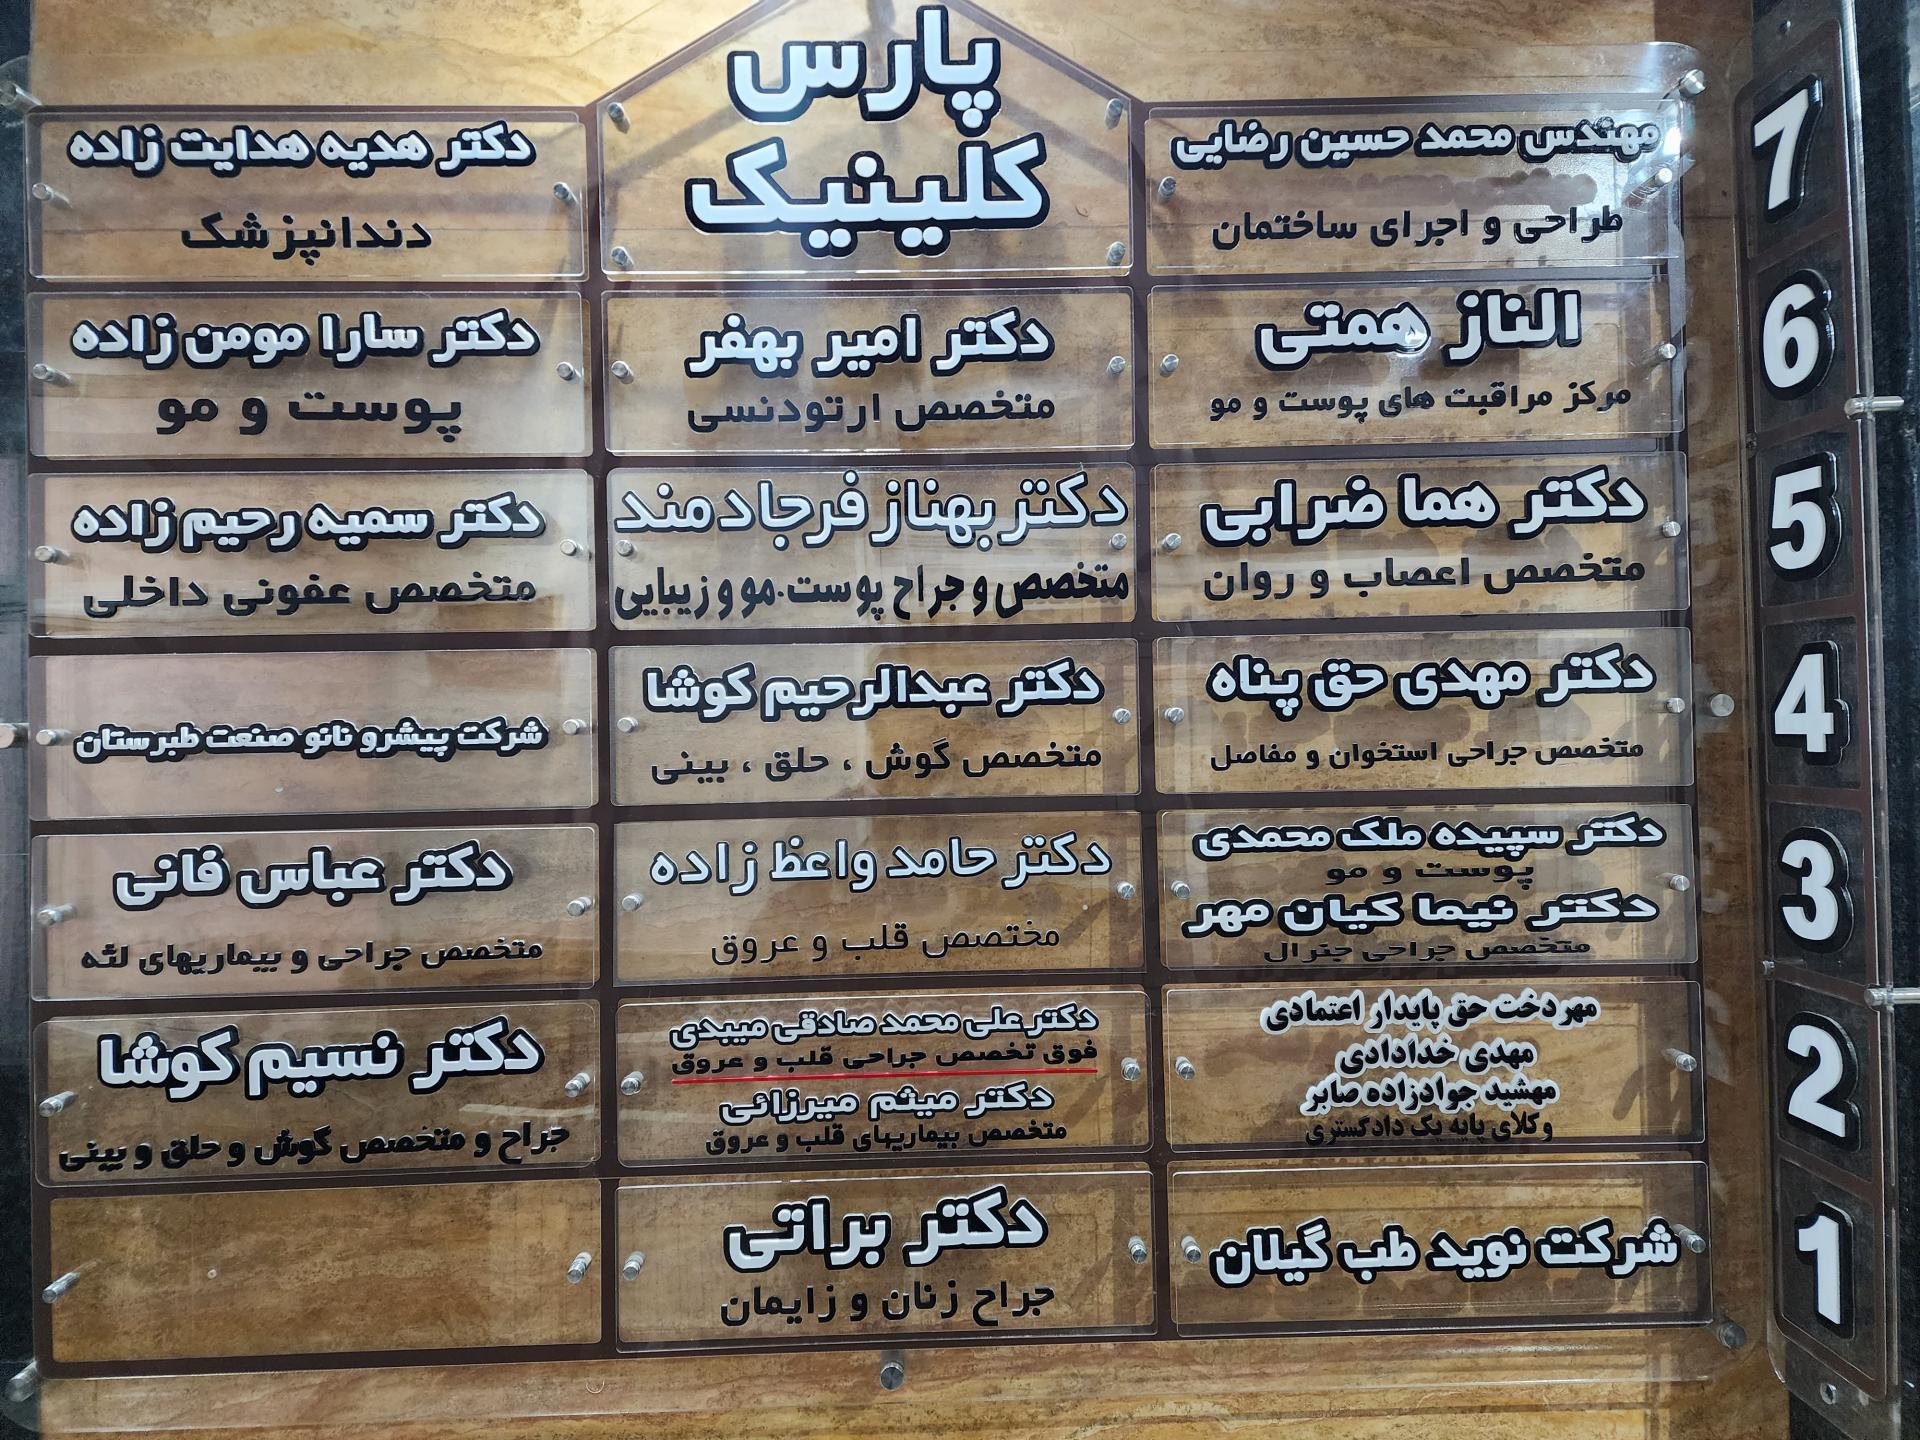 پارس
کلینیک
7
مهندس محمد حسین رضایی
طراحی و اجرای ساختمان
دکتر هدیه هدایت زاده
دندانپزشک
6
الناز همتی
مرکز مراقبت های پوست و مو
دکتر امیر بهفر
متخصص ارتودنسی
دکتر سارا مومن زاده
پوست و مو
5
دکتر هما ضرابی
متخصص اعصاب و روان
دکتر بهناز فرجادمند
متخصص و جراح پوست.مو و زیبایی
دکتر سمیه رحیم زاده
متخصص عفونی داخلی
4
دکتر مهدی حق پناه
متخصص جراحی استخوان و مفاصل
دکتر عبدالرحیم کوشا
متخصص گوش ، حلق ، بینی
شرکت پیشرو نانو صنعت طبرستان
3
دکتر سپیده ملک محمدی
پوست و مو
دکتر نیما کیان مهر
متخصص جراحی جنرال
دکتر حامد واعظ زاده
مختصص قلب و عروق
دکتر عباس فانی
متخصص جراحی و بیماریهای لثه
2
مهردخت حق پایدار اعتمادی
مهدی خدادادی
مهشید جوادزاده صابر
وکلای پایه یک دادگستری
دکتر علی محمد صادقی میبدی
فوق تخصص جراحی قلب و عروق
دکتر میثم میرزائی
متخصص بیماریهای قلب و عروق
دکتر نسیم کوشا
جراح و متخصص گوش و حلق و بینی
1
شرکت نوید طب گیلان
دکتر براتی
جراح زنان و زایمان